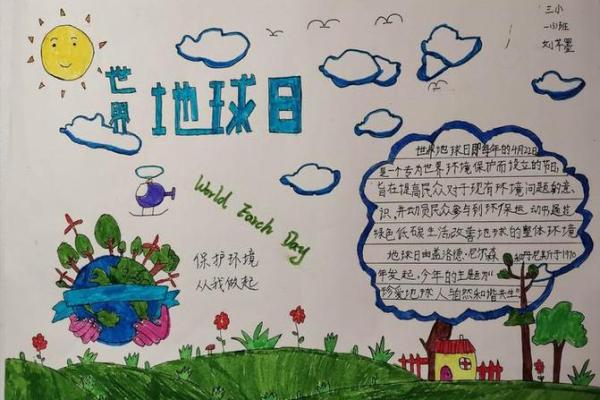 三小
一(1)班
世界
地球日
World Earch Day
保护环境
从我做起
世界地球日即每年的4月22日
是一个专为世界环境保护而设立的节日,
旨在提高民众对于现有环境问题的意
识,并动员民众参与到环保运动中,通过
绿色低碳生活,改善地球的整体环境
地球日由盖洛德·尼尔森和丹尼斯于1970
年发起,今年的主题为“
珍爱地球 人与自然和谐共生”